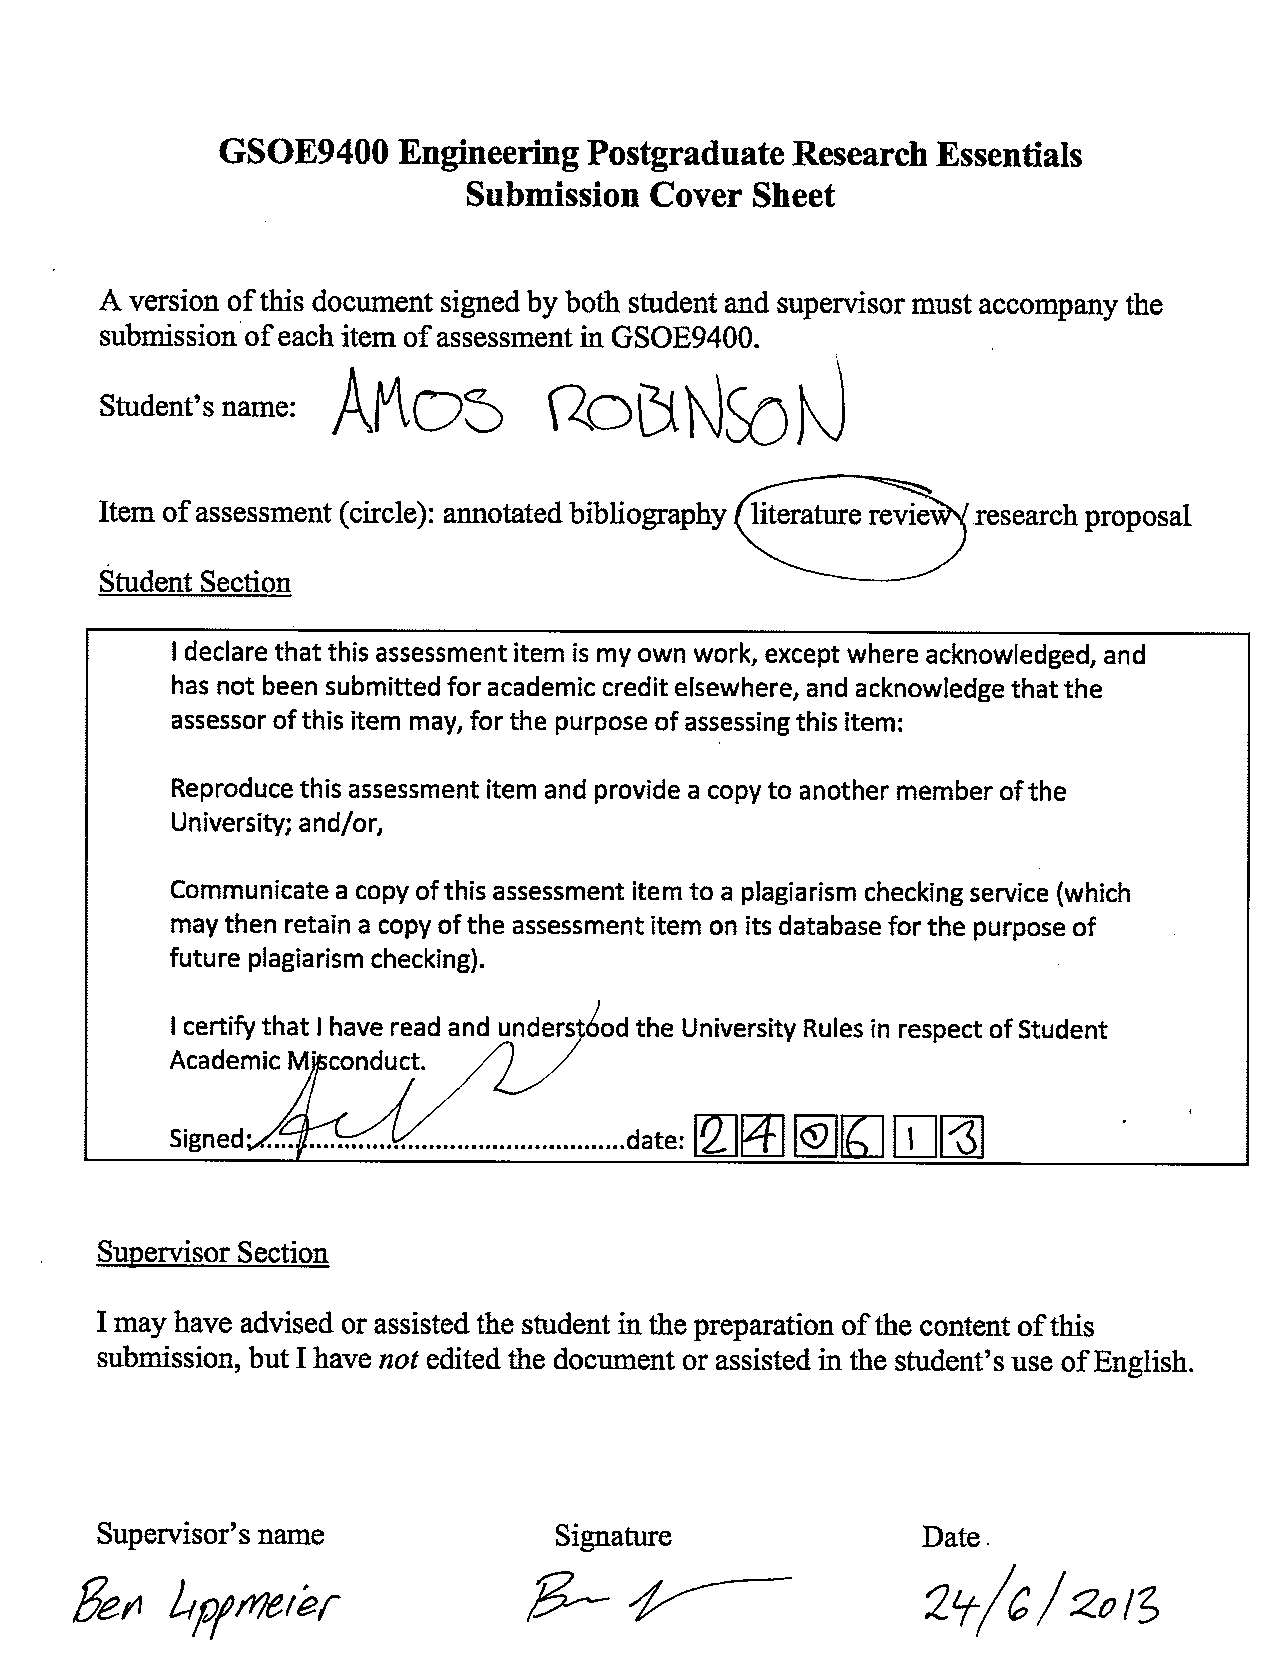 GSOE9400 Engineering Postgraduate Research Essentials
Submission Cover Sheet
A version of this document signed by both student and supervisor must accompany the
submission of each item of assessment in GSOE9400.
Student's name: AMOS ROBINSON
Item of assessment (circle): annotated bibliography / literature review / research proposal
Student Section
I declare that this assessment item is my own work, except where acknowledged, and
has not been submitted for academic credit elsewhere, and acknowledge that the
assessor of this item may, for the purpose of assessing this item:
Reproduce this assessment item and provide a copy to another member of the
University; and/or,
Communicate a copy of this assessment item to a plagiarism checking service (which
may then retain a copy of the assessment item on its database for the purpose of
future plagiarism checking).
I certify that I have read and understood the University Rules in respect of Student
Academic Misconduct.
Signed:.............................................date: 24 06 13
Supervisor Section
I may have advised or assisted the student in the preparation of the content of this
submission, but I have not edited the document or assisted in the student's use of English.
Supervisor's name Signature Date
Ben Lippmeier 24/6/2013